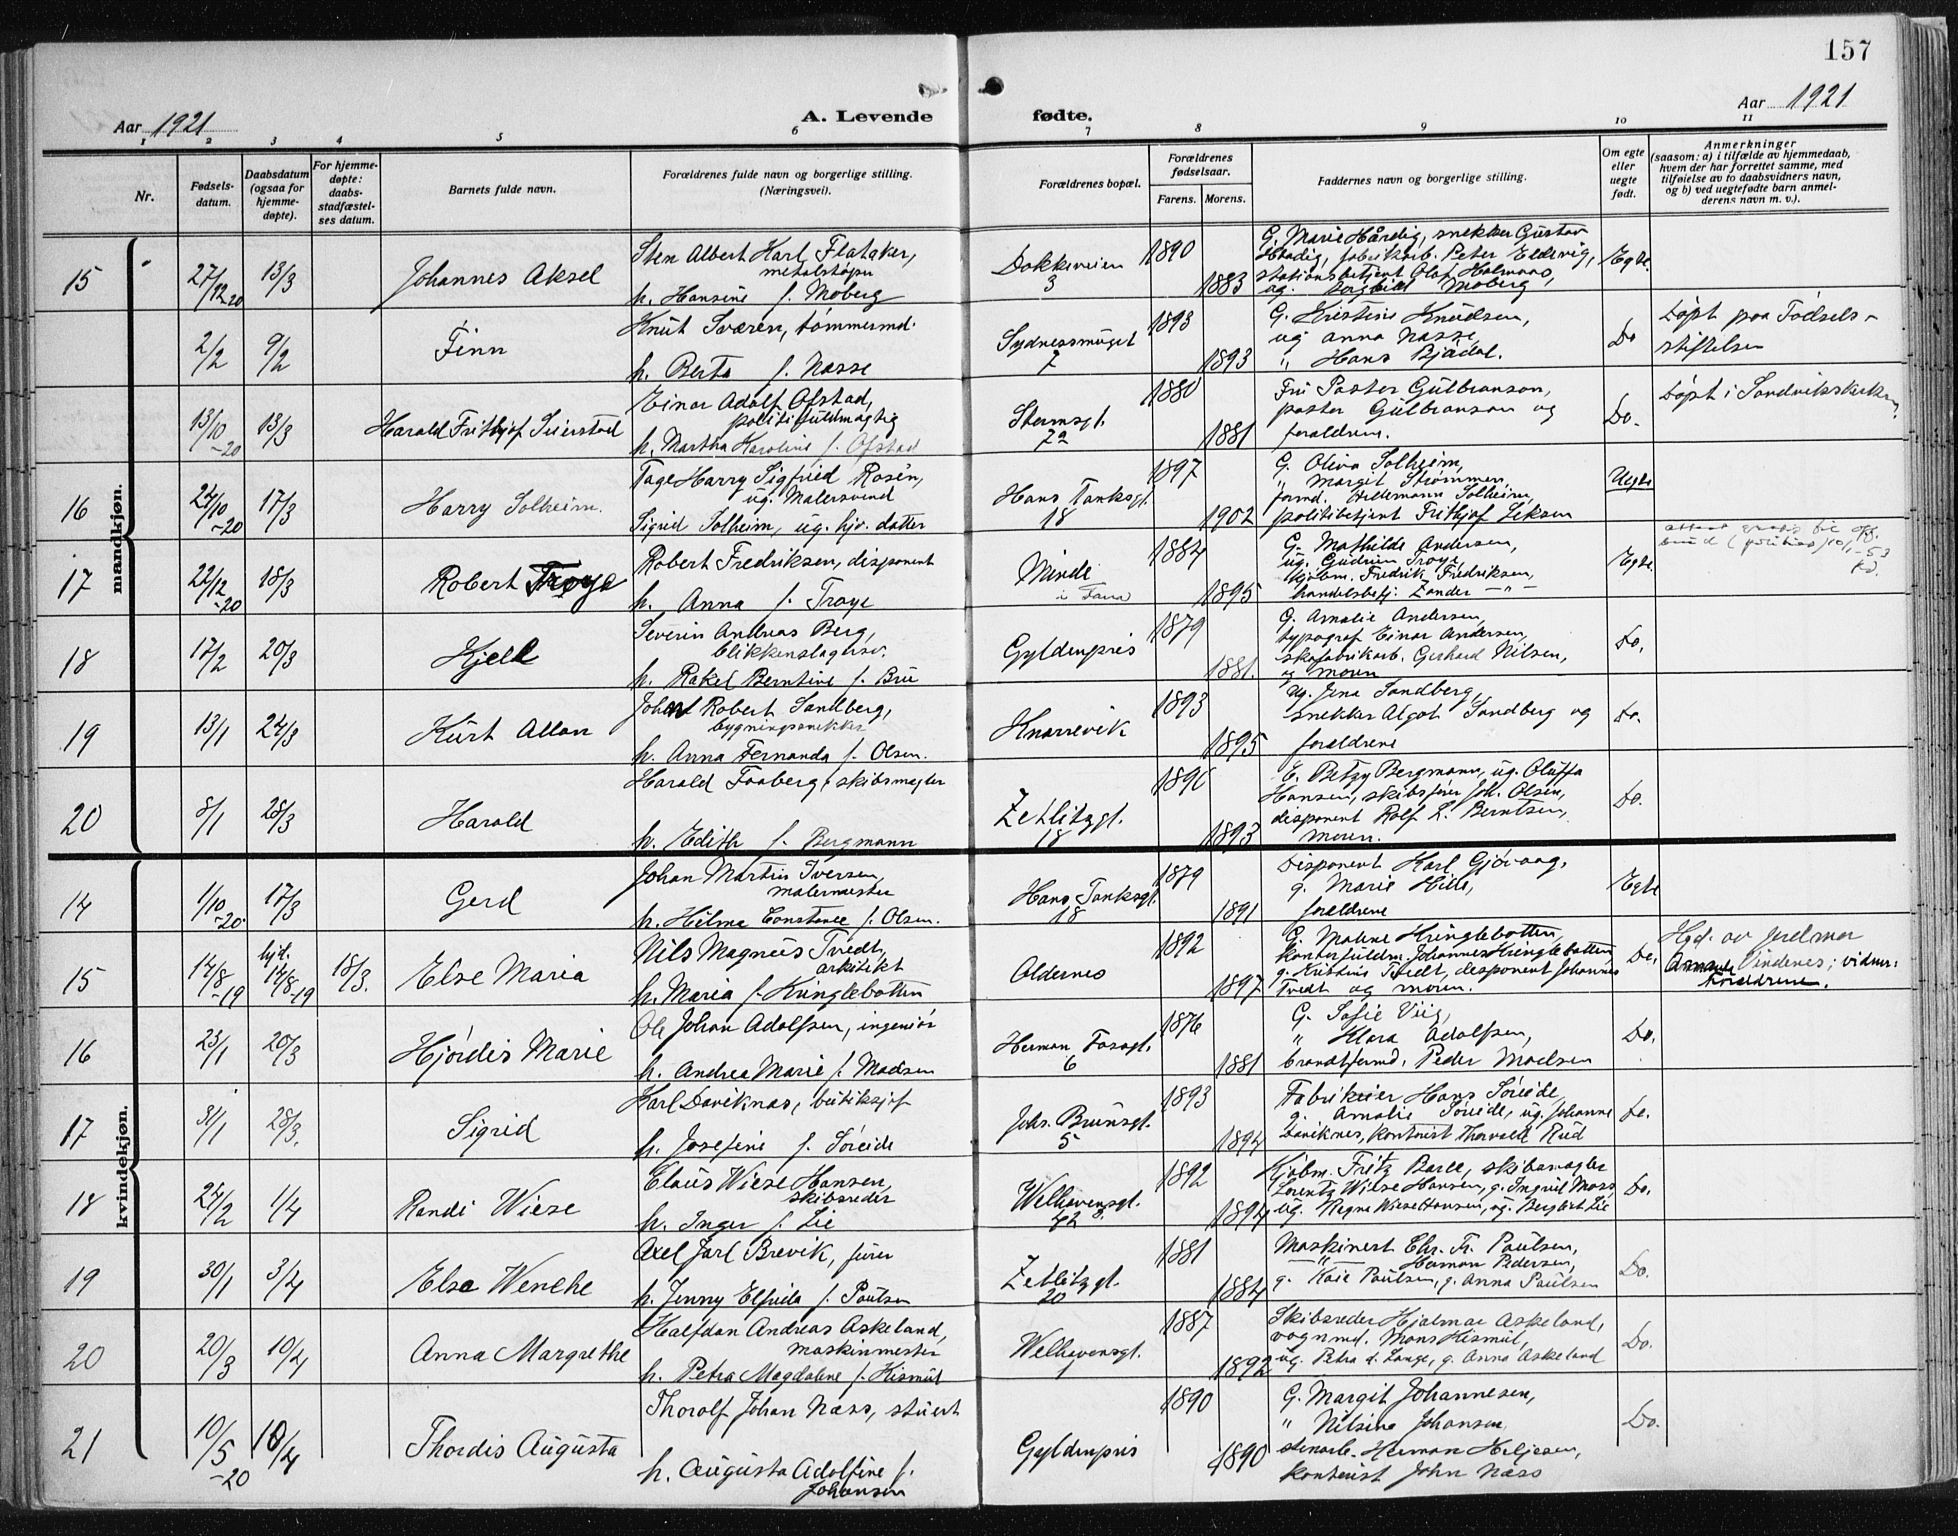 157
Aar 1921
A. Levende
fødte.
Aar 1921
1 2 3 4 5 6 7 8 9 10 11
Nr.
Fødsels-
datum.
Daabsdatum
(ogsaa for
hjemme-
døpte).
For hjemme-
døpte:
daabs-
stadfæstel-
ses datum.
Barnets fulde navn.
Forældrenes fulde navn og borgerlige stilling.
(Næringsvei).
Forældrenes bopæl.
Forældrenes
fødselsaar.
Farens. Morens.
Faddernes navn og borgerlige stilling.
Om egte
eller
uegte
født.
Anmerkninger
(saasom: a) i tilfælde av hjemmedaab,
hvem der har forrettet samme, med
tilføielse av to daabsvidners navn,
og b) ved uegtefødte barn anmel-
derens navn m. v.).
mandkjøn.
15 27/12 20 13/3 Johannes Aksel
Sten Albert Karl Flataker,
h. Hansine f. Moberg
Dokkeveien
3
1890
1883
G. Marie Hårdig, snekker Gustav
Hårdig, fabrikarb. Peter Eldevig,
stationsbetjent Olaf Holmaas,
ug. Moberg
Egte.
2/2 9/2 Finn
Knut Sværen, tømmermd.
h. Berta f. Nasse
Sydnessmuget
7
1893
1893
G. Kristine Knudsen,
ug Anna Nasse,
" Hans Bjådal.
Do
Døpt paa Fødsels-
stiftelsen
13/10 -20 13/3 Harald Frithjof Seierstad
Einar Adolf Ofstad,
politifuldmægtig
h. Martha Karoline f. Ofstad
Stormsgt.
72
1880
1881
Fru Pastor Gulbranson,
pastor Gulbranson og
forældrene.
Do.
Døpt i Sandvikskirken.
16 24/10 -20 17/3 Harry Solheim.
Tage Harry Sigfried Rosén,
ug. Malersvend
Sigrid Solheim, ug. hjv. datter
Hans Tanksgt.
18
1897
1902
G. Oliva Solheim,
" Margit Strømmen,
formd. Hildemann Solheim,
politibetjent Frithjof Eiksen
Uegte
17 22/12 -20 18/3 Robert Troye
Robert Fredriksen, disponent
h. Anna f. Troye
Minde
i Fana
1884
1895
G. Mathilde Andersen,
ug. Gudrun Troye,
kjøbm. Fredrik Fredriksen,
handelsbetj. Zander -"-
Egte.
18 17/2 20/3 Kjell
Severin Andreas Berg,
blikkenslagersv.
h. Rakel Berntine f. Bru
Gyldenpris
1879
1881.
G. Amalie Andersen,
typograf Einar Andersen,
skofabrikarb. Gerhard Nilsen,
og moren
Do.
19 13/1 24/3 Kurt Allan
John Robert Sandberg,
bygningssnekker
h. Anna Fernanda f. Olsen.
Knarrevik
1893
1895
ug. Jena Sandberg,
snekker Algot Sandberg og
forældrene
Do.
20 8/1 28/3 Harald
Harald Faaberg, skibsmegler
h. Edith f. Bergmann
Zetlitzgt.
18
1896
1893
E. Betzy Bergmann, ug. Oluffa
Hansen, skibsfører Joh. Olsen,
disponent Rolf L. Berntsen,
moren.
Do.
kvindekjøn.
14 1/10 -20 17/3 Gerd
Johan Martin Iversen,
malermester
h. Hilma Constance f. Olsen.
Hans Tanksgt.
18
1879
1891
Disponent Karl Gjøvaag,
g. Marie Hille,
forældrene
Egte
15 14/8 -19 hjd. 14/8 -19 18/3. Else Maria
Nils Magnus Tvedt,
arkitekt
h. Maria f. Kringlebotten
Oldernes
1892
1897
G. Malene Kringlebotten,
kontorfuldm. Johannes Kringlebotten,
g. Kristine Tvedt, disponent Johannes
Tvedt og moren.
Do.
Hjd. av jordmor
Vindenes; vidner:
Forældrene.
16 23/1 20/3 Hjørdis Marie
Ole Johan Adolfsen, ingeniør
h. Andrea Marie f. Madsen
Herman Fossgt.
6
1876
1881
G. Sofie Viig,
" Klara Adolfsen,
brandformd. Peder Madsen
Do.
17 31/1 28/3. Sigrid
Karl Daviknes, butiksjef
h. Josefine f. Søreide
Johs. Brunsgt.
5
1893
1894
Fabrikeier Hans Søreide,
g. Amalie Søreide, ug. Johanne
Daviknes, kontorist Thorvald Rud
Do.
18 24/2 1/4 Randi Wiese
Claus Wiese Hansen,
skibsreder
h. Inger f. Lie
Welhavensgt.
42
1892
1894
Kjøbm. Fritz Barlie, skibsmegler
Lorentz Wiese Hansen, g. Ingrid Moss,
ug. Ragna Wiese Hansen, ug. Bergliot Lie
Do.
19 30/1 3/4 Else Wenche
Axel Jarl Brevik, fører
h. Jenny Elfrida f. Paulsen
Zetlitzgt.
20
1881
1884
Maskinert Chr. Fr. Paulsen,
-"- Herman Pedersen,
g. Kaie Paulsen, g. Anna Paulsen
Do.
20 20/3 10/4 Anna Margrethe
Halfdan Andreas Askeland,
maskinmester
h. Petra Magdalene f. Hismul
Welhavensgt.
1887
1892
Skibsreder Hjalmar Askeland,
vognmd. Mons Hismul,
ug. Petra d. Lange, g. Anna Askeland
Do.
21 10/5 -20 10/4 Thordis Augusta
Thorolf Johan Næss, stuert
h. Augusta Adolfine f.
Johansen
Gyldenpris
1890
1890
G. Margit Johannesen,
" Nilsine Johansen
stenarb. Herman Heljesen,
kontorist John Næss
Do.